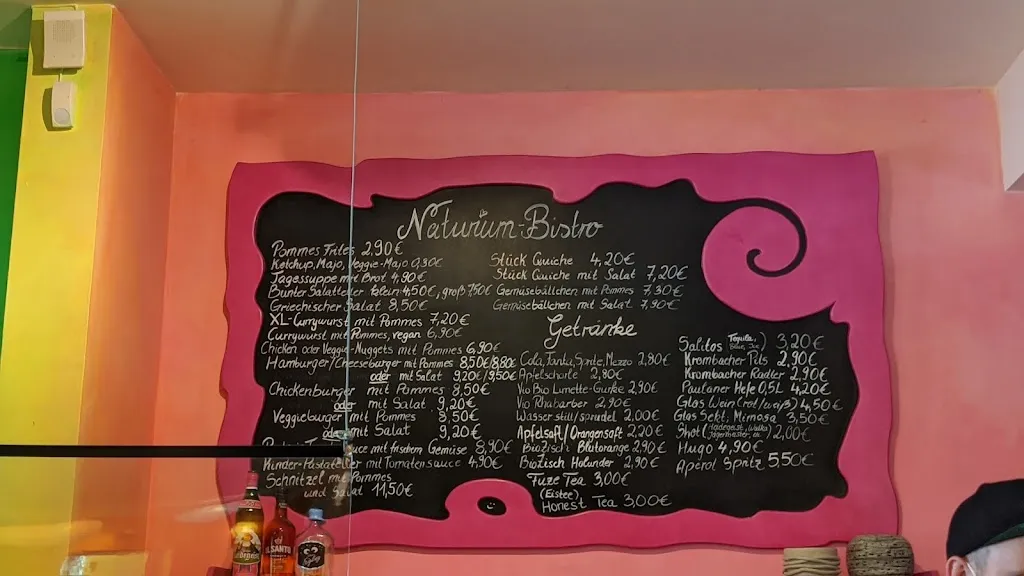 Naturium-Bistro
Pommes Frites 2,90€
Ketchup, Majo, Veggie-Majo 0,90€
Tagessuppe mit Brot 4,90€
Bunter Salatteller klein 4,50€, groß 7,50€
Griechischer Salat 8,50€
XL-Currywurst mit Pommes 7,20€
Currywurst mit Pommes, vegan 6,90€
Chicken oder Veggie-Nuggets mit Pommes 6,90€
Hamburger/Cheeseburger mit Pommes 8,50€/8,80€
oder mit Salat 9,20€/9,50€
Chickenburger mit Pommes 8,50€
oder mit Salat 9,20€
Veggieburger mit Pommes 8,50€
oder mit Salat 9,20€
mit frischem Gemüse 8,90€
Kinder-Pastateller mit Tomatensauce 4,90€
Schnitzel mit Pommes
und Salat 11,50€
Stück Quiche 4,20€
Stück Quiche mit Salat 7,20€
Gemüsebällchen mit Pommes 7,90€
Gemüsebällchen mit Salat 7,90€
Getränke
Cola, Fanta, Sprite, Mezzo 2,80€
Apfelschorle 2,80€
Vio Bio Limette-Gurke 2,90€
Vio Rhabarber 2,90€
Wasser still/sprudel 2,00€
Apfelsaft/Orangensaft 2,20€
Biozisch Blutorange 2,90€
Biozisch Holunder 2,90€
Fuze Tea 3,00€
(Eistee)
Honest Tea 3,00€
Salitos 3,20€
Krombacher Pils 2,90€
Krombacher Radler 2,90€
Paulaner Hefe 0,5L 4,20€
Glas Wein (rot/weiß) 4,50€
Glas Sekt, Mimosa 3,50€
Shot 2,00€
Hugo 4,90€
Aperol Spritz 5,50€